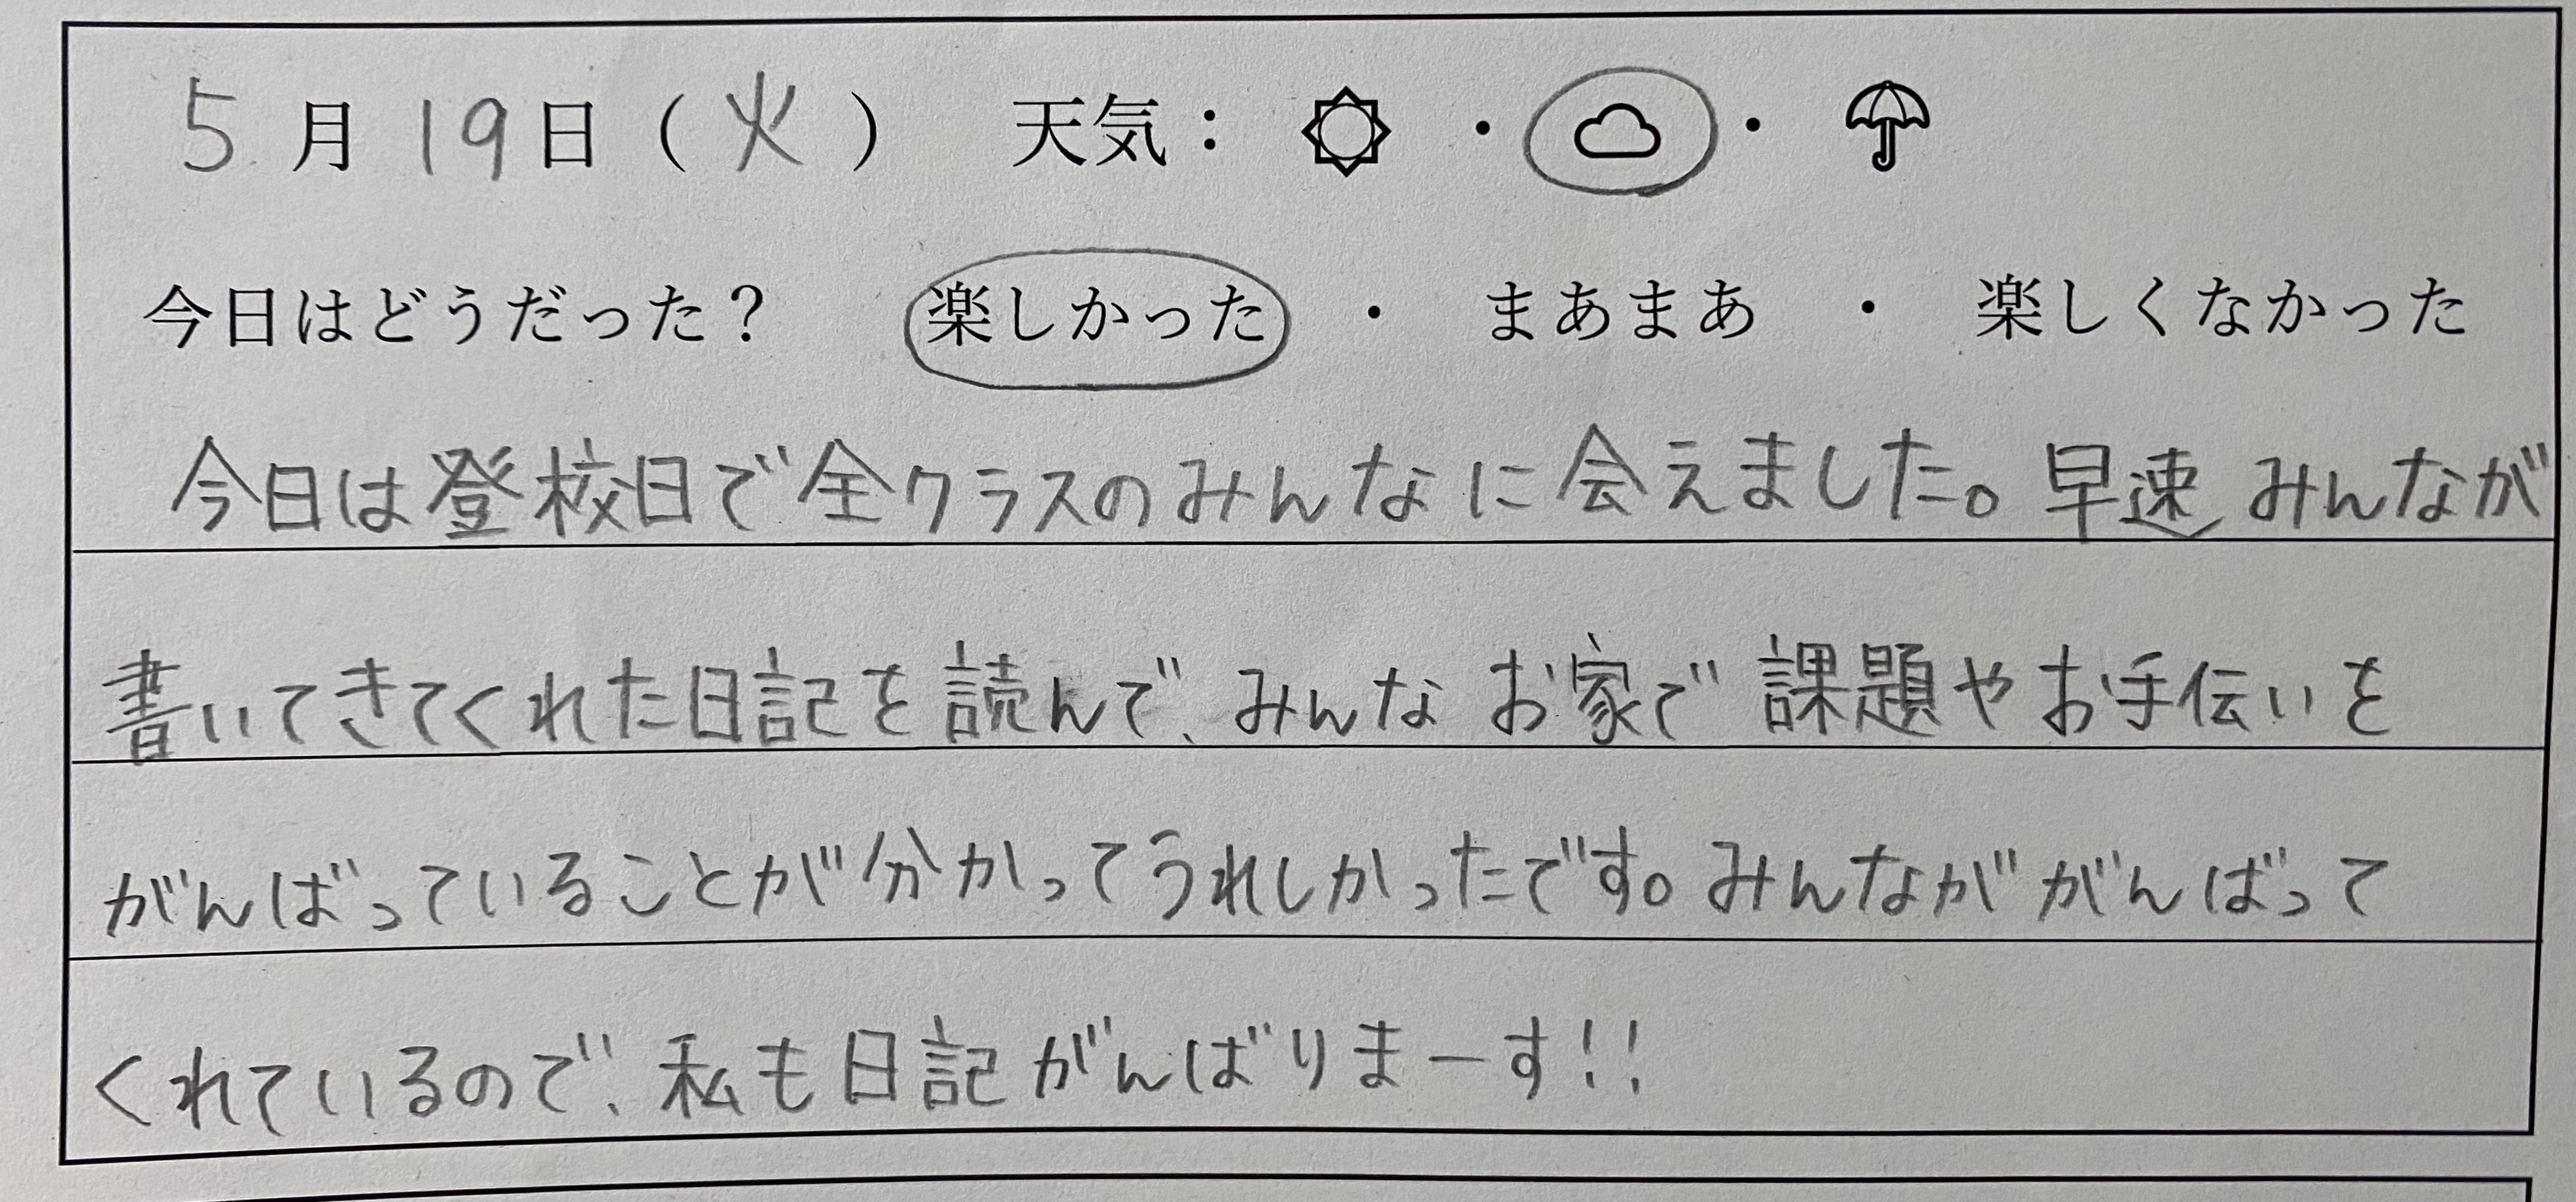 5月19日(火) 天気: ・ ・
今日はどうだった? 楽しかった ・ まあまあ ・ 楽しくなかった
今日は登校日で全クラスのみんなに会えました。早速みんなが
書いてきてくれた日記を読んで、みんなお家で課題やお手伝いを
がんばっていることが分かってうれしかったです。みんながんばって
くれているので、私も日記がんばりまーす!!